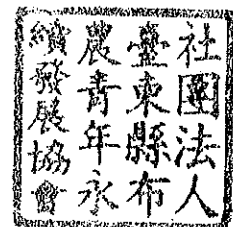 社團法人
臺東縣布
農青年永
續發展協會